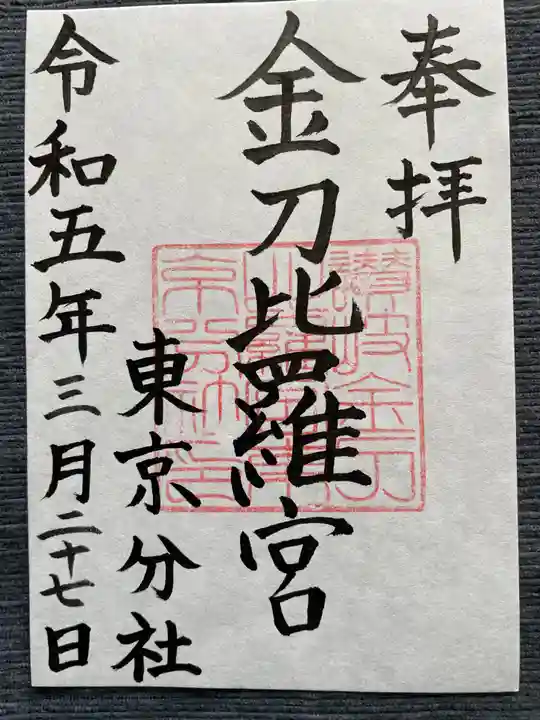 奉拝
金刀比羅宮
東京分社
令和五年三月二十七日
讃岐金刀
比羅宮東
京分社印